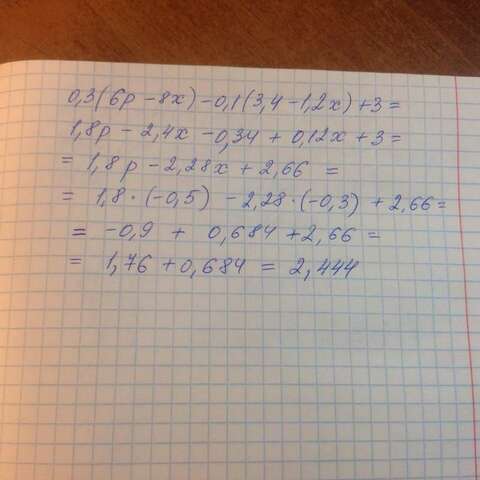 0,3(6p - 8x) - 0,1(3,4 - 1,2x) + 3 =
1,8p - 2,4x - 0,34 + 0,12x + 3 =
= 1,8p - 2,28x + 2,66 =
= 1,8 · (-0,5) - 2,28 · (-0,3) + 2,66 =
= -0,9 + 0,684 + 2,66 =
= 1,76 + 0,684 = 2,444